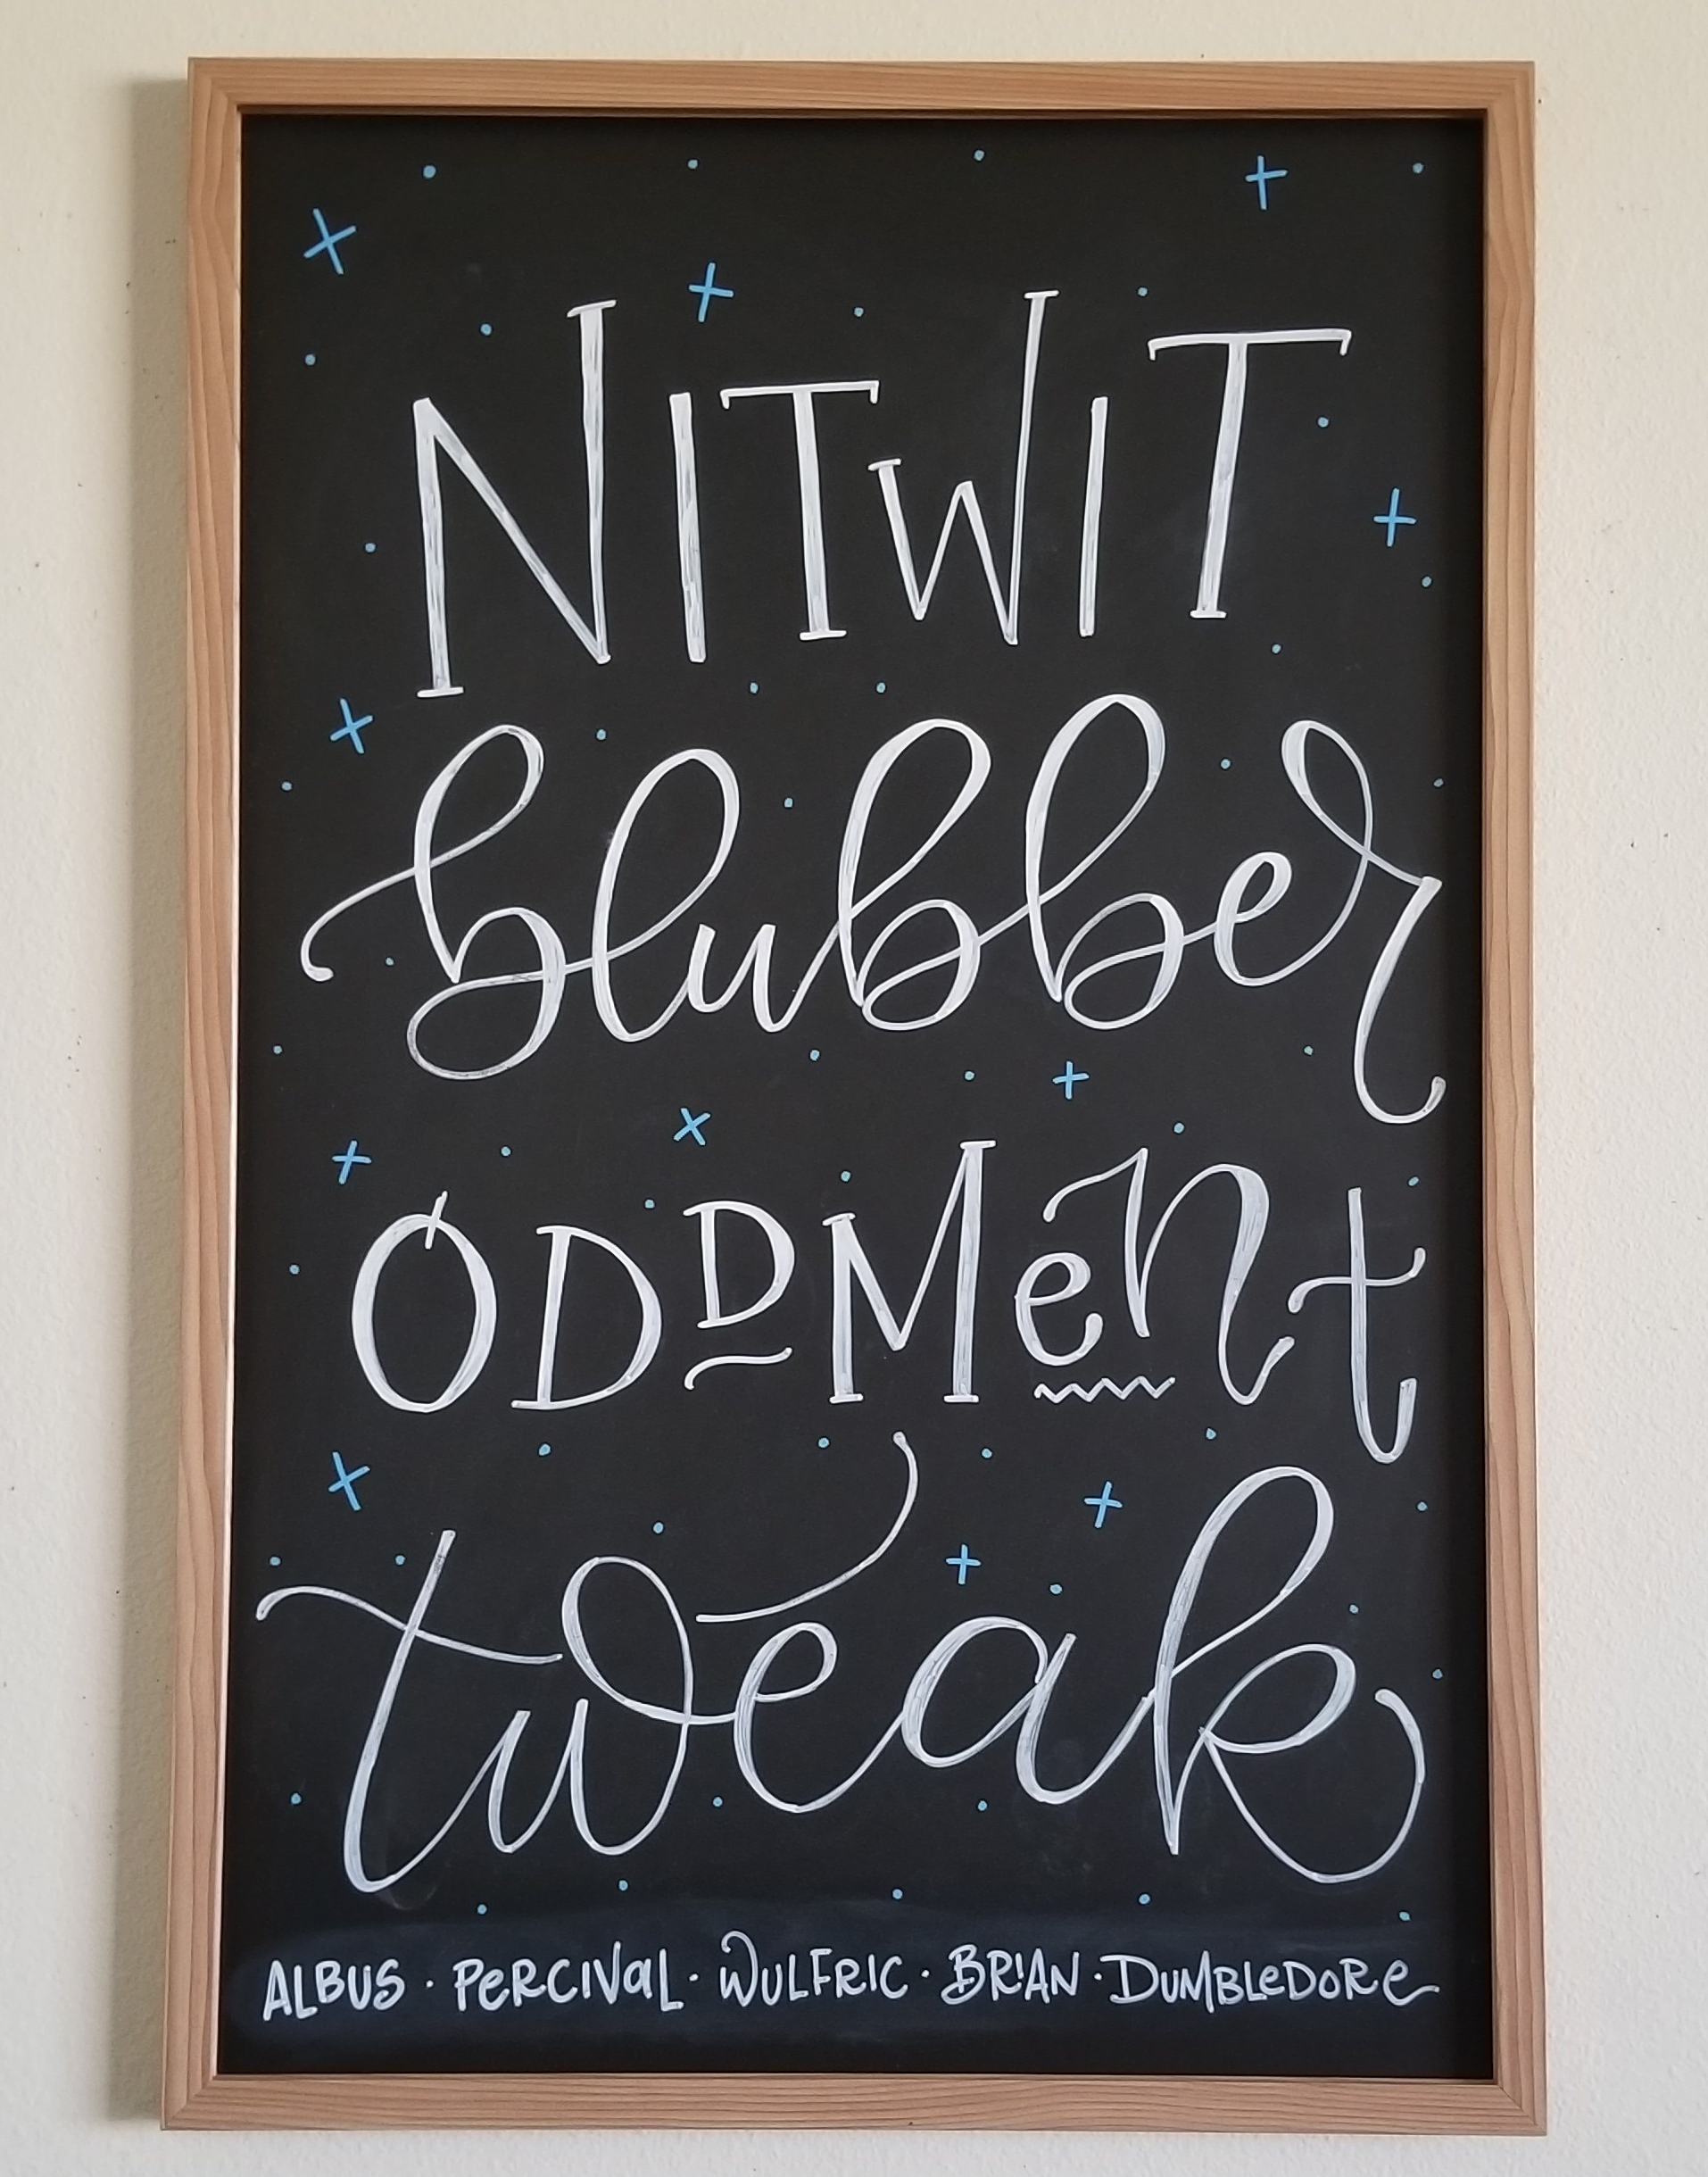 NITWIT
blubber
ODDMent
tweak
ALBUS · PERCIVAL · WULFRIC · BRIAN · DUMBLEDORE